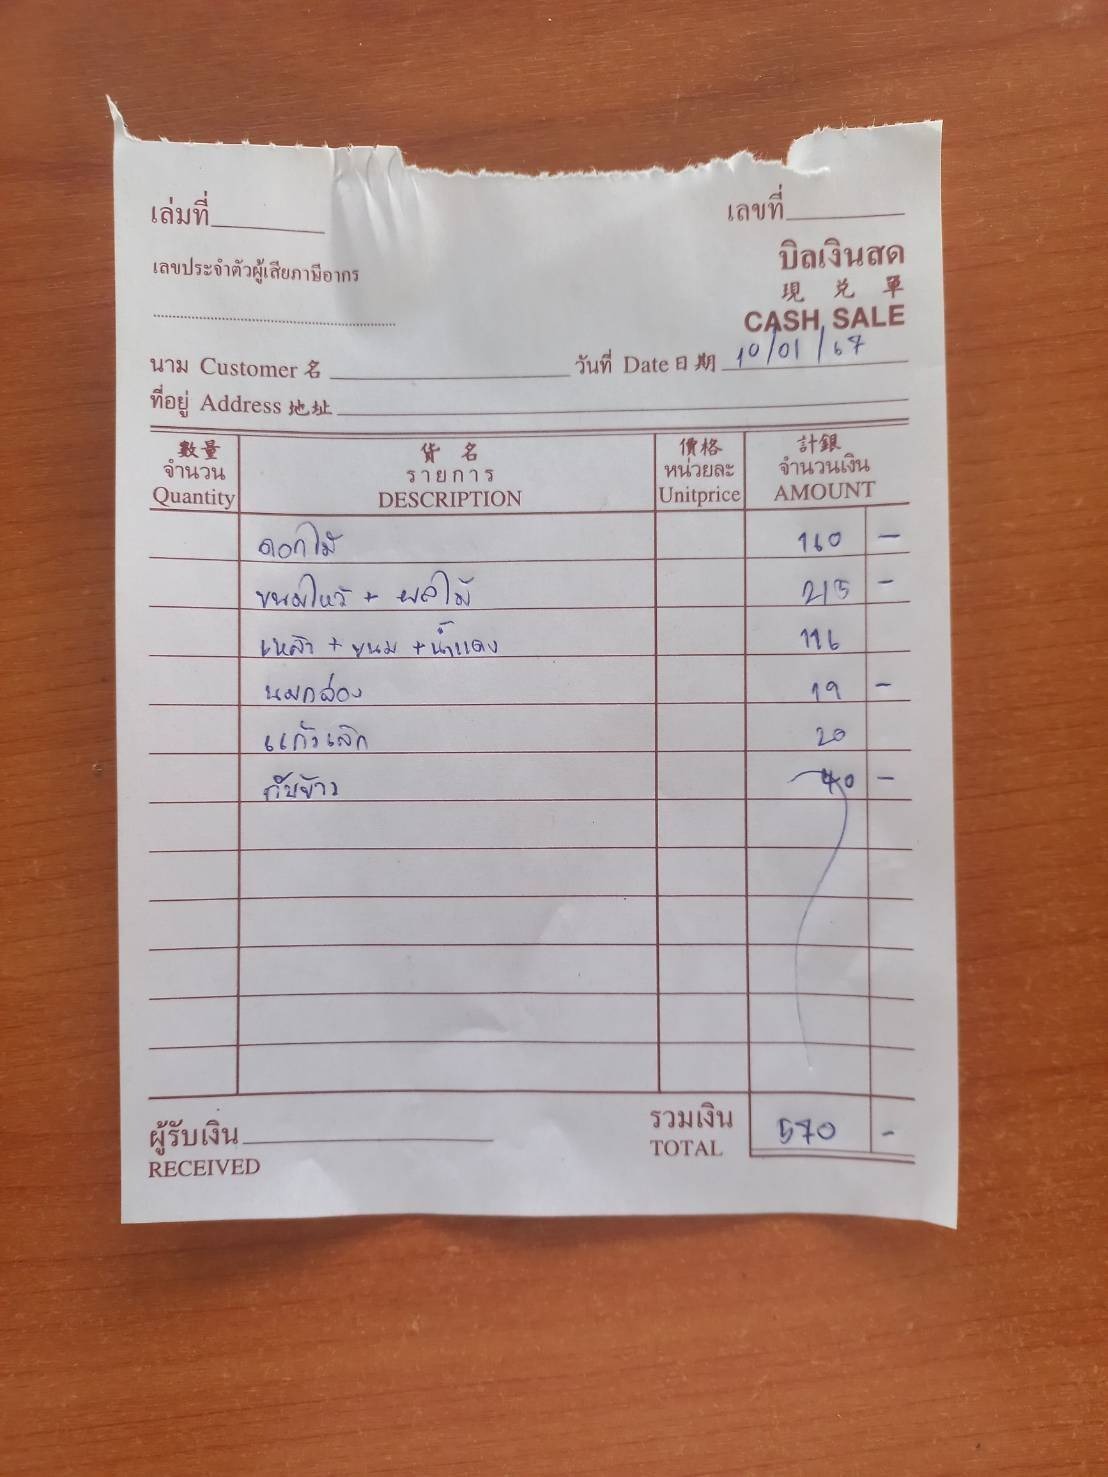 เล่มที่ เลขที่
บิลเงินสด
เลขประจำตัวผู้เสียภาษีอากร
現 兌 單
CASH SALE
นาม Customer 名 วันที่ Date 日期 10/01/67
ที่อยู่ Address 地址
數量 貨名 價格 計銀
จำนวน รายการ หน่วยละ จำนวนเงิน
Quantity DESCRIPTION Unitprice AMOUNT
ดอกไม้ 160 -
ขนมไหว้ + ผลไม้ 215 -
เหล้า + ขนม + น้ำแดง 116
นมกล่อง 19 -
แก้วเล็ก 20
กับข้าว 40 -
ผู้รับเงิน รวมเงิน 570 -
RECEIVED TOTAL